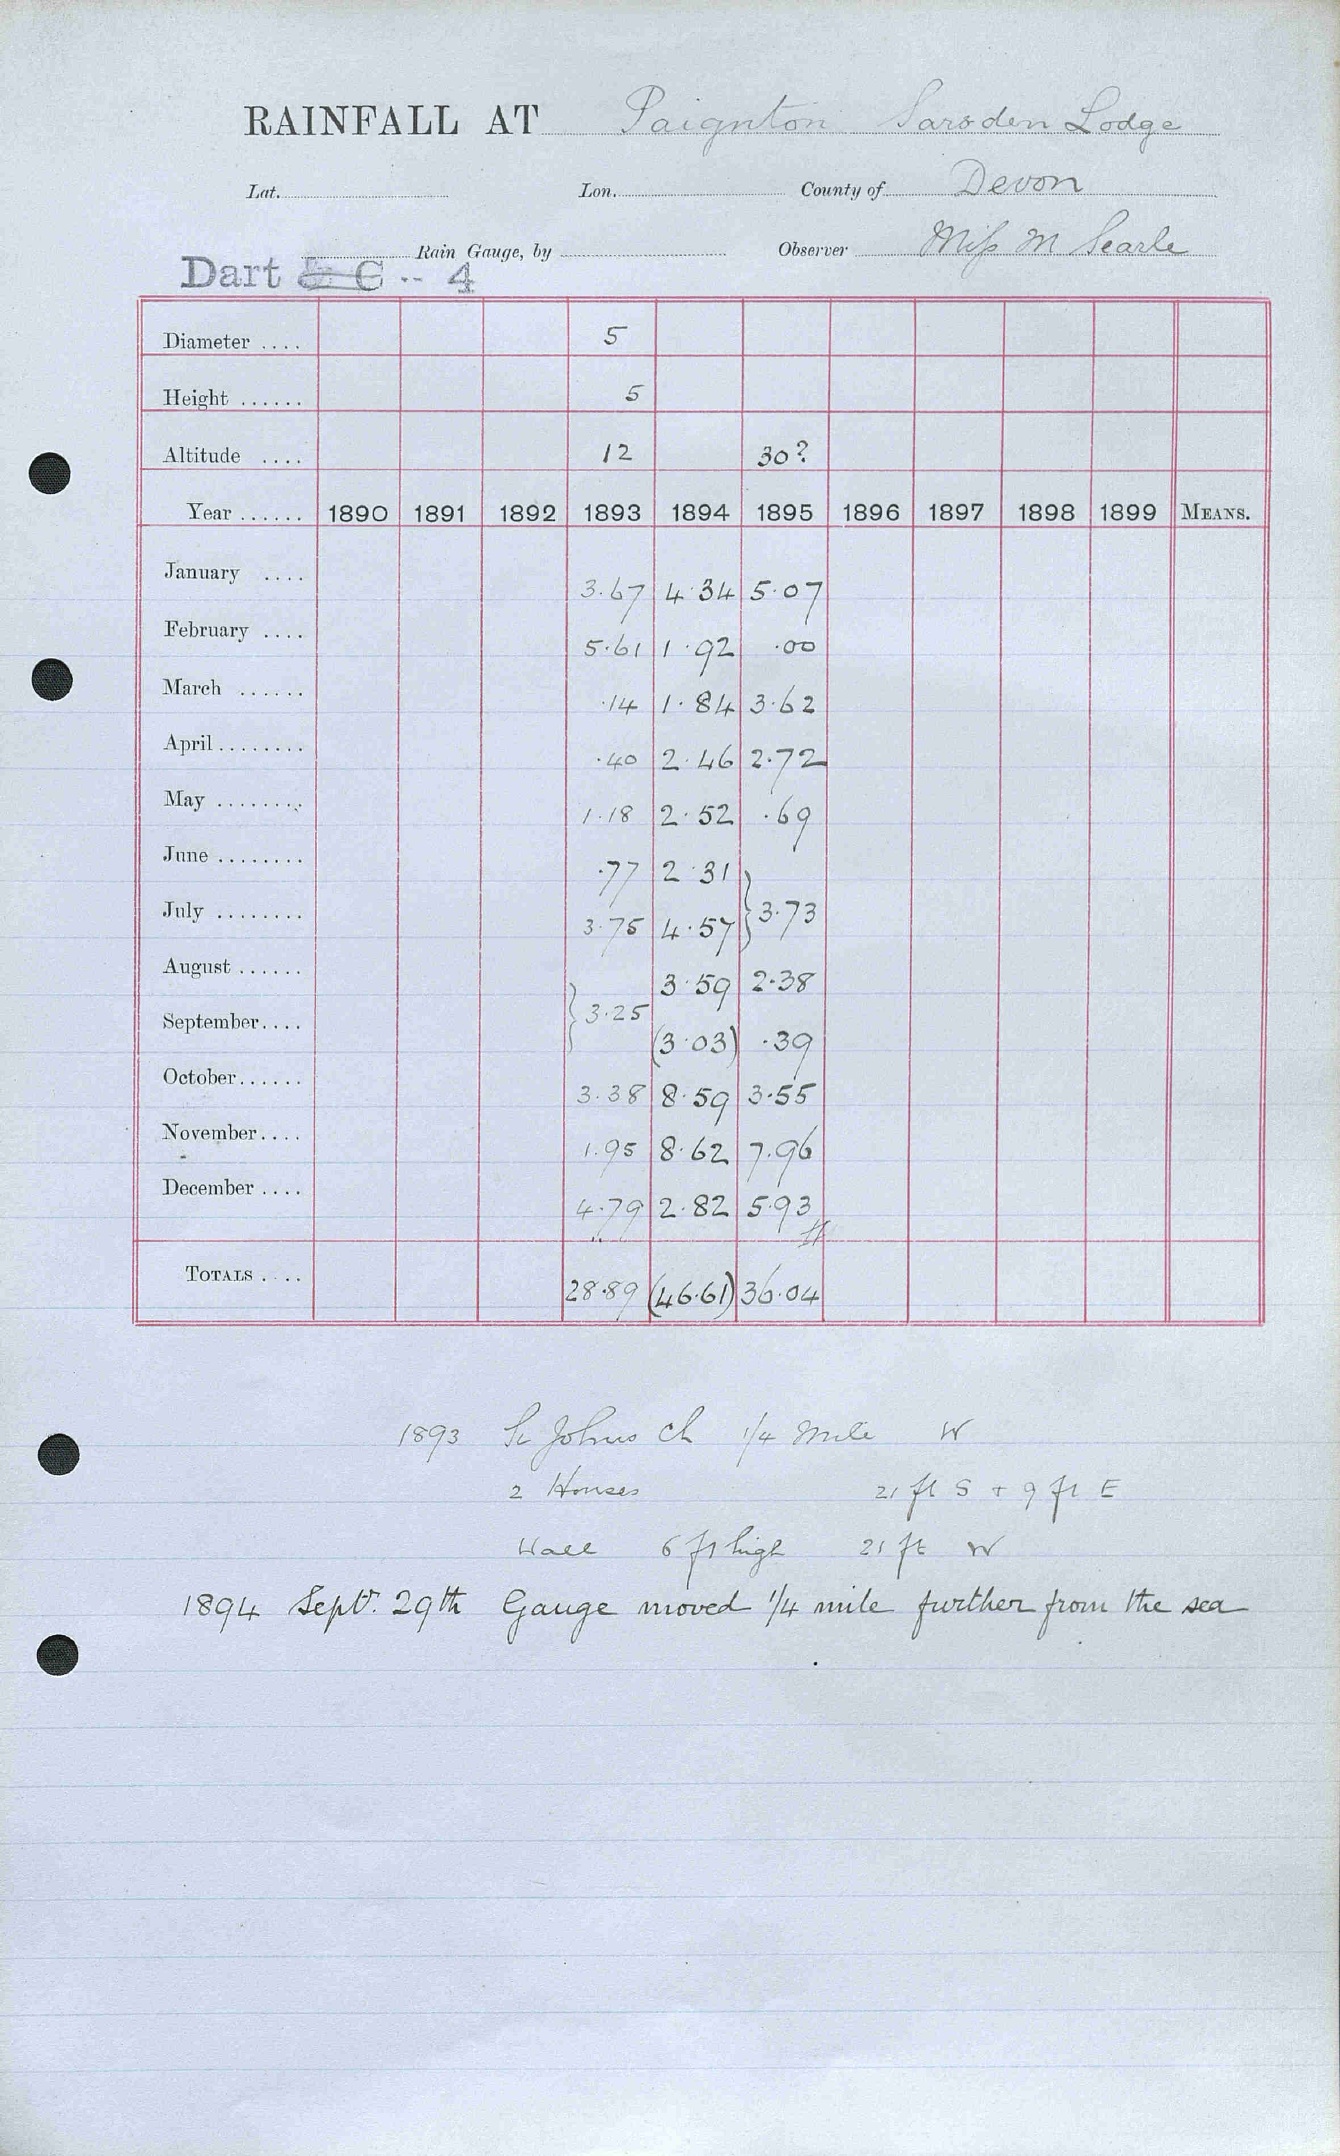 RAINFALL AT Paignton Sarsden Lodge
Lat. Lon. County of Devon
Rain Gauge, by Observer Miss M Searle
Dart & C -- 4
Diameter .... 5
Height ...... 5
Altitude .... 12 30?
Year ...... 1890 1891 1892 1893 1894 1895 1896 1897 1898 1899 MEANS.
January .... 3.67 4.34 5.07
February .... 5.61 1.92 .00
March ...... .14 1.84 3.62
April ........ .40 2.46 2.72
May ........ 1.18 2.52 .69
June ........ .77 2.31
July ........ 3.75 4.57 } 3.73
August ...... 3.59 2.38
September .... } 3.25 (3.03) .39
October ...... 3.38 8.59 3.55
November .... 1.95 8.62 7.96
December .... 4.79 2.82 5.93
TOTALS .... 28.89 (46.61) 36.04
1893 St Johns Ch 1/4 Mile W
2 Houses 21 ft S + 9 ft E
Wall 6 ft high 21 ft W
1894 Sept. 29th Gauge moved 1/4 mile further from the sea